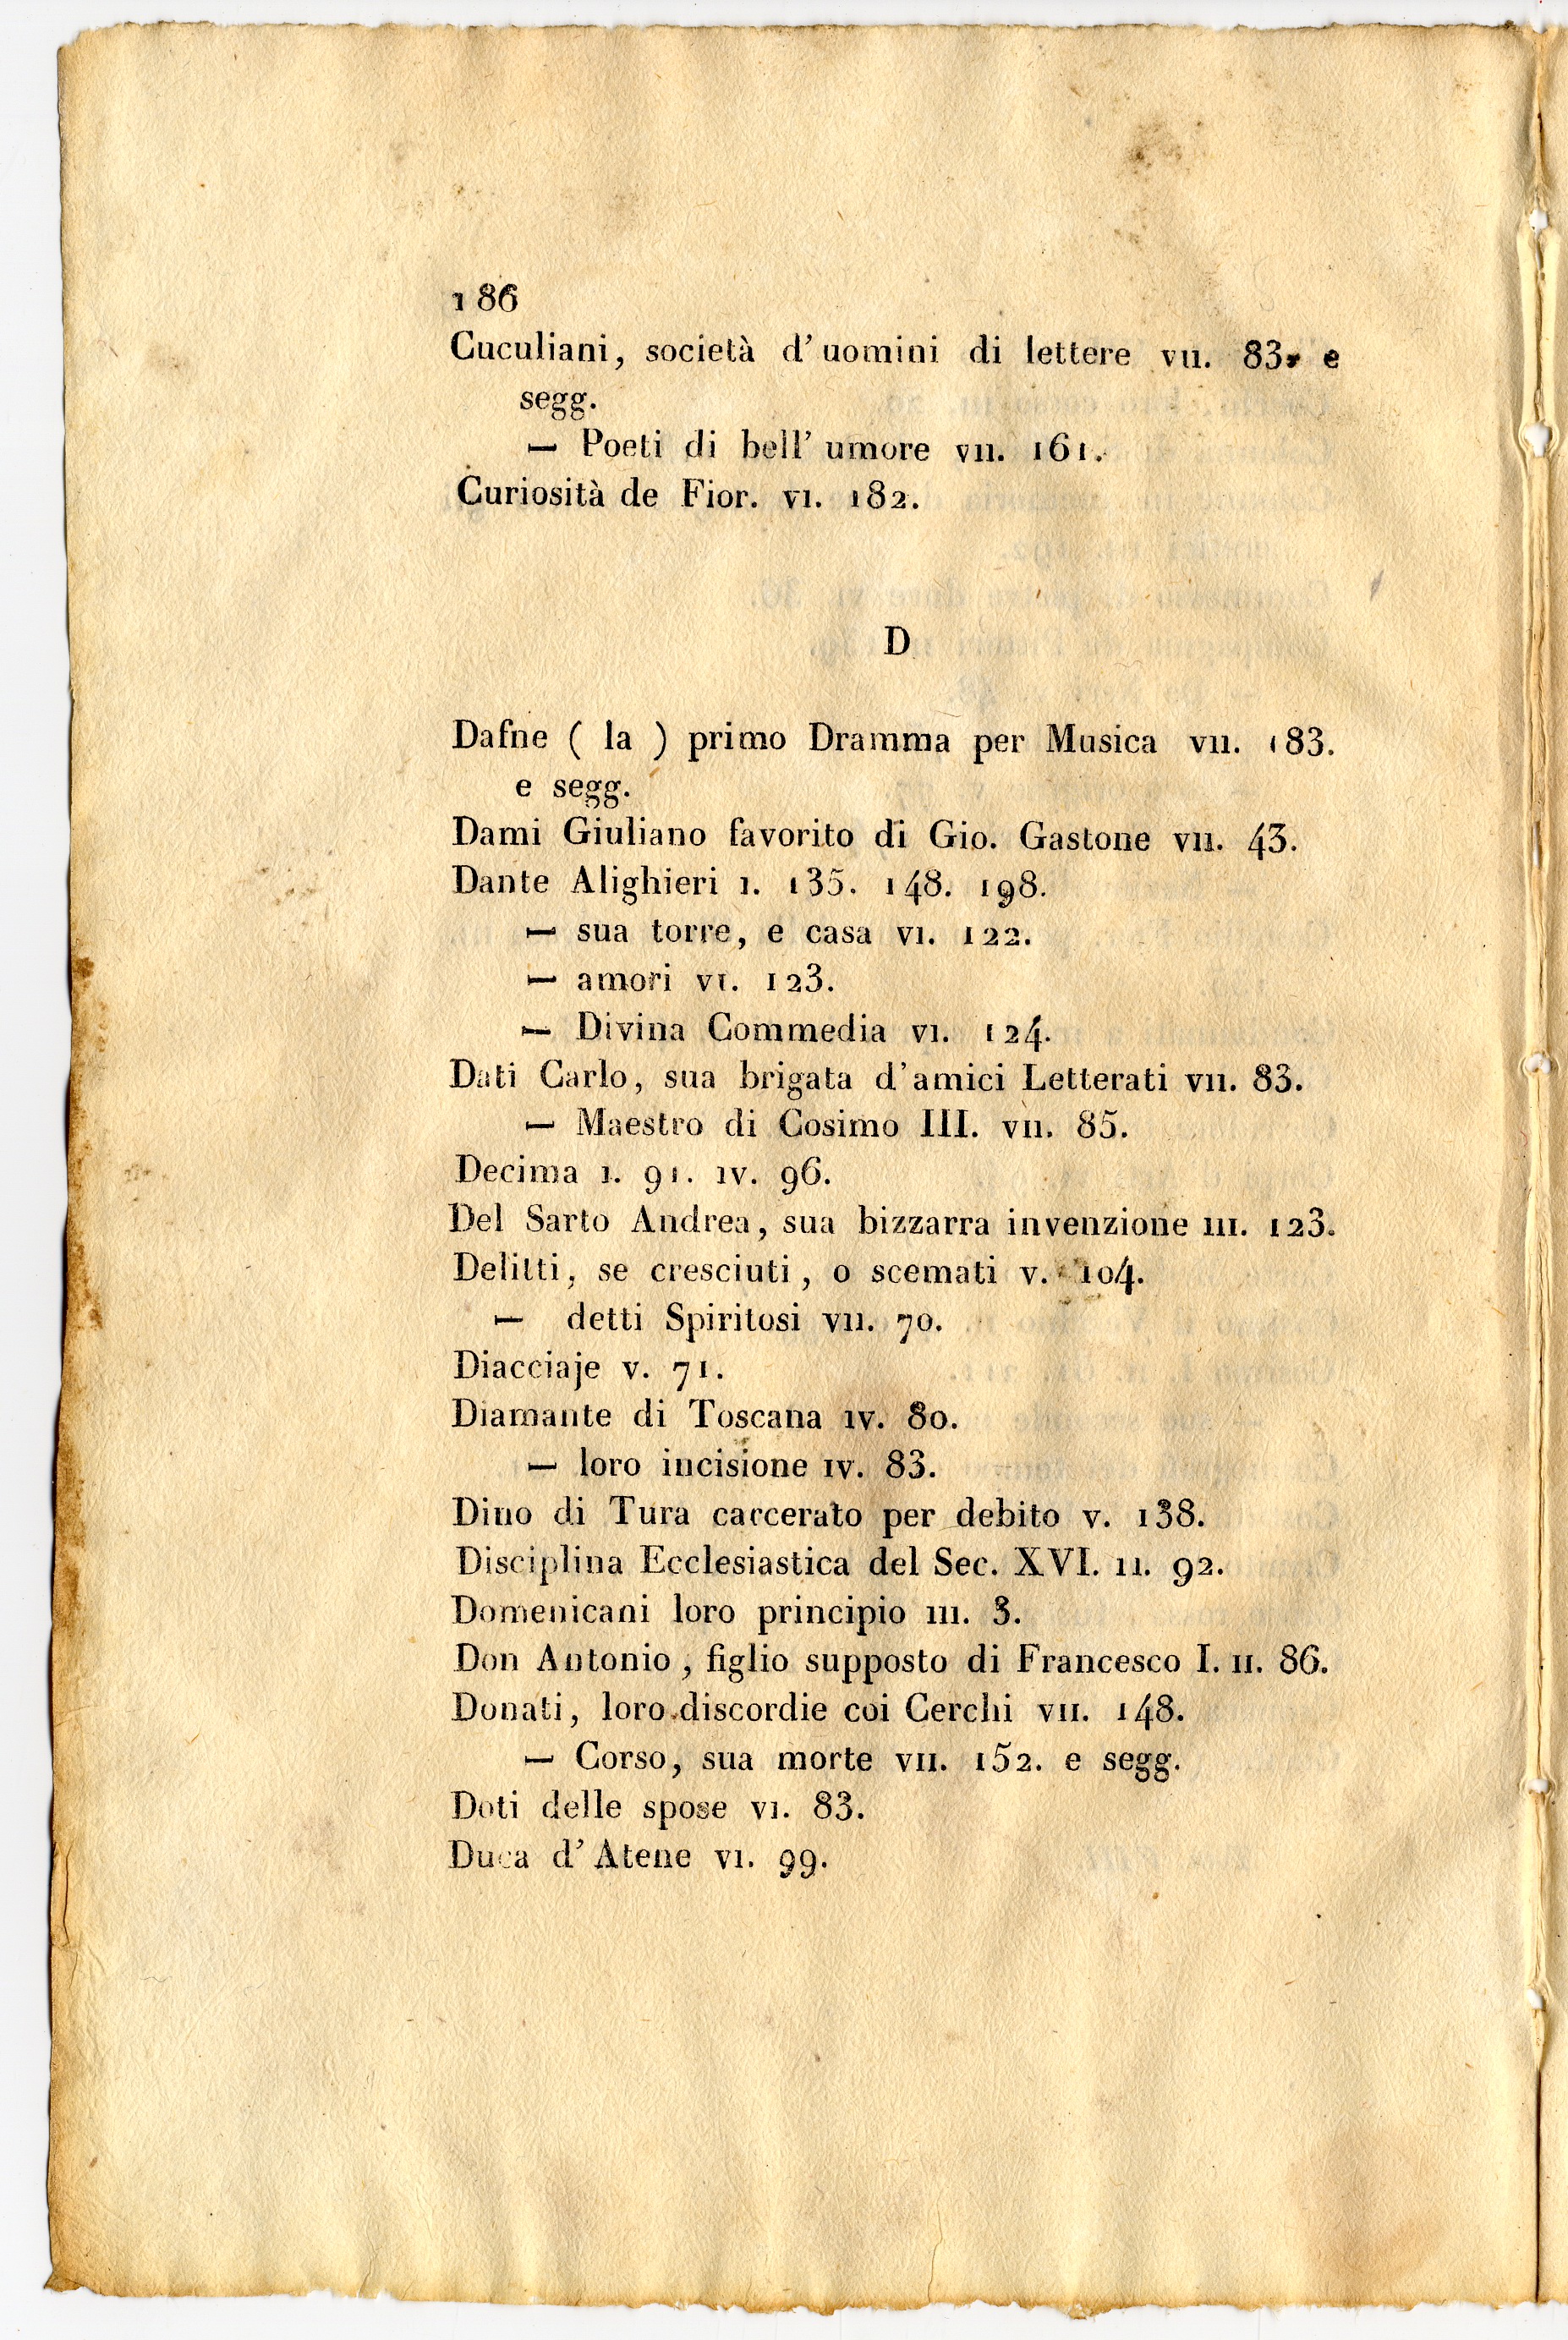 186
Cuculiani, società d'uomini di lettere VII. 83. e
segg.
— Poeti di bell' umore VII. 161.
Curiosità de Fior. VI. 182.
D
Dafne ( la ) primo Dramma per Musica VII. 183.
e segg.
Dami Giuliano favorito di Gio. Gastone VII. 43.
Dante Alighieri I. 135. 148. 198.
— sua torre, e casa VI. 122.
— amori VI. 123.
— Divina Commedia VI. 124.
Dati Carlo, sua brigata d'amici Letterati VII. 83.
— Maestro di Cosimo III. VII. 85.
Decima I. 91. IV. 96.
Del Sarto Andrea, sua bizzarra invenzione III. 123.
Delitti, se cresciuti, o scemati V. 104.
— detti Spiritosi VII. 70.
Diacciaje V. 71.
Diamante di Toscana IV. 80.
— loro incisione IV. 83.
Dino di Tura carcerato per debito V. 138.
Disciplina Ecclesiastica del Sec. XVI. II. 92.
Domenicani loro principio III. 3.
Don Antonio, figlio supposto di Francesco I. II. 86.
Donati, loro discordie coi Cerchi VII. 148.
— Corso, sua morte VII. 152. e segg.
Doti delle spose VI. 83.
Duca d'Atene VI. 99.